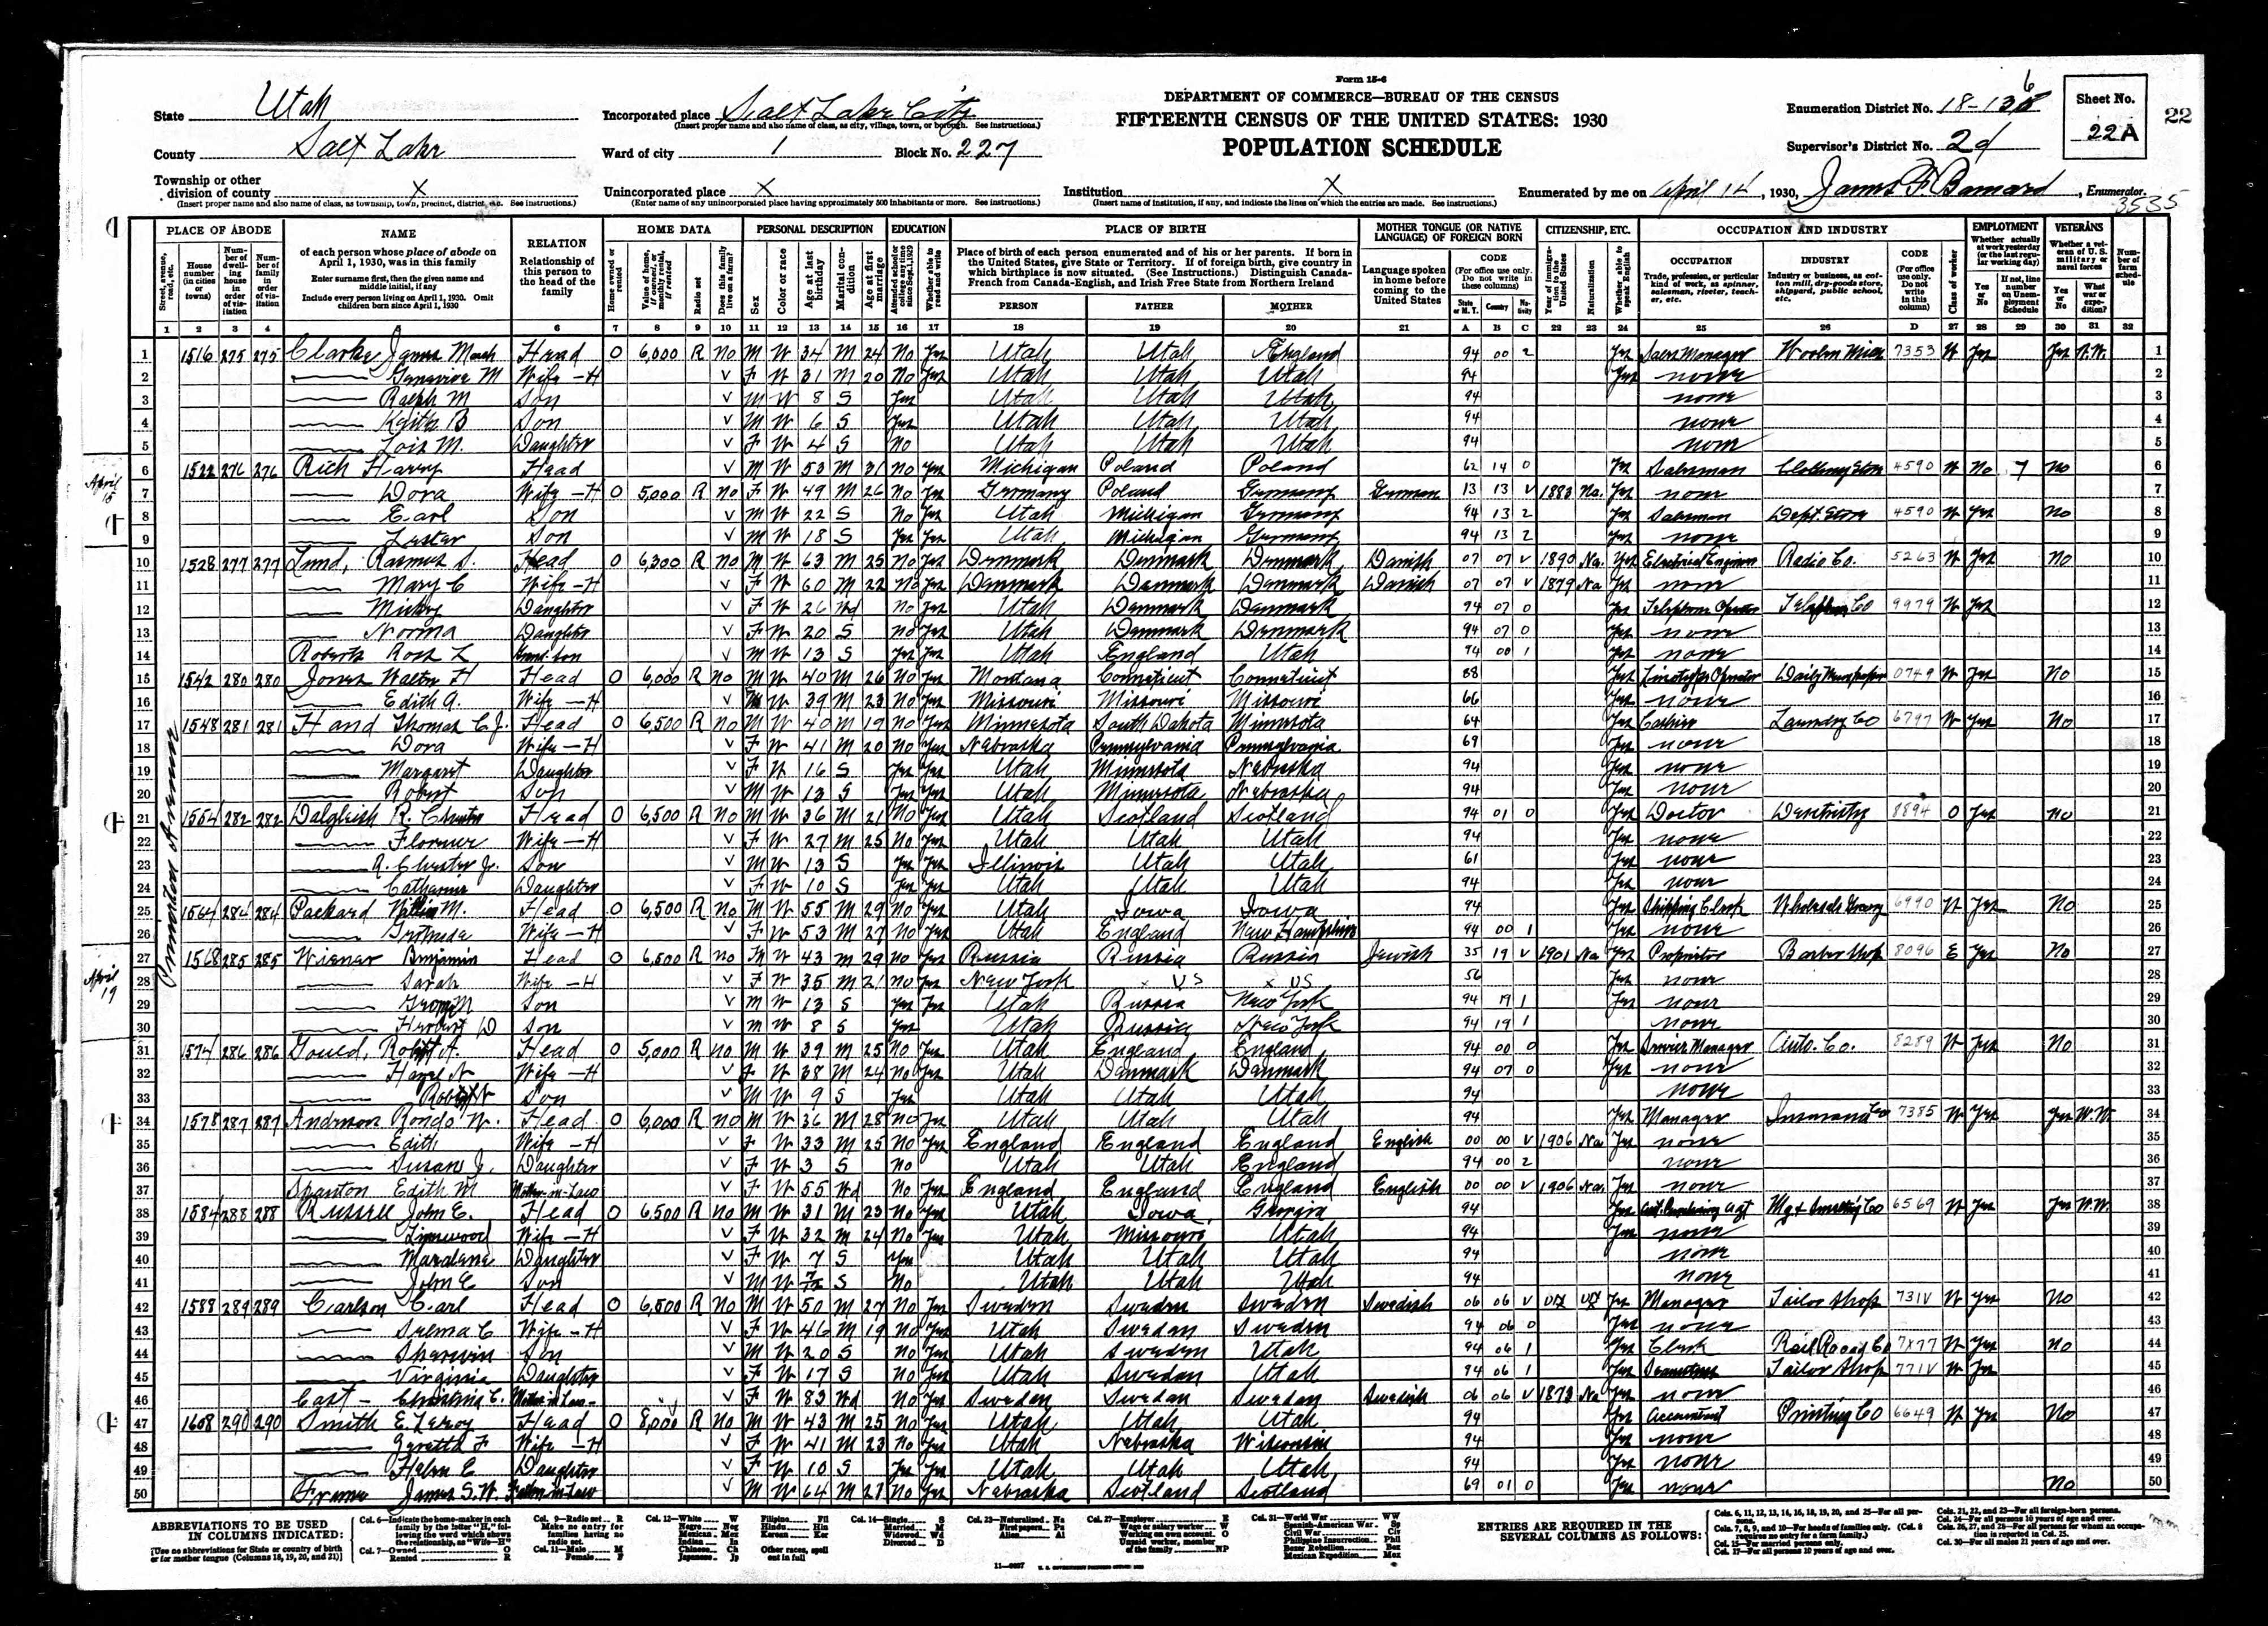 Form 15-6
State Utah
Incorporated place Salt Lake City
(Insert proper name and also name of class, as city, village, town, or borough. See instructions.)
DEPARTMENT OF COMMERCE—BUREAU OF THE CENSUS
Enumeration District No. 18-136
Sheet No.
22 A
22
FIFTEENTH CENSUS OF THE UNITED STATES: 1930
County Salt Lake
Ward of city 1 Block No. 227
POPULATION SCHEDULE
Supervisor's District No. 2d
Township or other division of county X
(Insert proper name and also name of class, as township, town, precinct, district, etc. See instructions.)
Unincorporated place X
(Enter name of any unincorporated place having approximately 500 inhabitants or more. See instructions.)
Institution X
(Insert name of institution, if any, and indicate the lines on which the entries are made. See instructions.)
Enumerated by me on April 14, 1930, James F. Barnard, Enumerator.
3535
PLACE OF ABODE NAME RELATION HOME DATA PERSONAL DESCRIPTION EDUCATION PLACE OF BIRTH MOTHER TONGUE (OR NATIVE LANGUAGE) OF FOREIGN BORN CITIZENSHIP, ETC. OCCUPATION AND INDUSTRY EMPLOYMENT VETERANS
1 2 3 4 5 6 7 8 9 10 11 12 13 14 15 16 17 18 19 20 21 A B C 22 23 24 25 26 D 27 28 29 30 31 32
Princeton Avenue
1 1516 275 275 Clarke James Head O 6,000 R No M W 34 M 24 No Yes Utah Utah England 94 00 2 Yes Sales Manager Woolen 7353 W Yes Yes W.W. 1
2 Genevieve M Wife-H V F W 31 M 20 No Yes Utah Utah Utah 94 Yes none 2
3 Ralph M Son V M W 8 S Yes Utah Utah Utah 94 none 3
4 Keith B Son V M W 6 S Yes Utah Utah Utah 94 none 4
5 Lois M. Daughter V F W 4 S No Utah Utah Utah 94 none 5
April 15
6 1522 276 276 Rich Harry Head V M W 53 M 31 No Yes Michigan Poland Poland 62 14 0 Yes Salesman Clothing Store 4590 W No 7 No 6
7 Dora Wife-H O 5,000 R No F W 49 M 26 No Yes Germany Poland Germany German 13 13 V 1883 Na. Yes none 7
8 Earl Son V M W 22 S No Yes Utah Michigan Germany 94 13 2 Yes Salesman Dept. Store 4590 W Yes No 8
9 Lester Son V M W 18 S Yes Yes Utah Michigan Germany 94 13 2 Yes none 9
10 1528 277 277 Lund, Rasmus S. Head O 6,300 R No M W 63 M 25 No Yes Denmark Denmark Denmark Danish 07 07 V 1890 Na. Yes Electrical Engineer Radio Co. 5263 W Yes No 10
11 Mary C Wife-H V F W 60 M 22 No Yes Denmark Denmark Denmark Danish 07 07 V 1879 Na Yes none 11
12 Daughter V F W 26 Wd No Yes Utah Denmark Denmark 94 07 0 Yes Telephone Operator Telephone Co 9979 W Yes 12
13 Norma Daughter V F W 20 S No Yes Utah Denmark Denmark 94 07 0 Yes none 13
14 Roberts Ross L Grand-son V M W 13 S Yes Yes Utah England Utah 94 00 1 Yes none 14
15 1542 280 280 Jones Walter H Head O 6,000 R No M W 40 M 26 No Yes Montana Conneticut Conneticut 88 Yes Linotype Operator Daily Newspaper 0749 W Yes No 15
16 Edith A. Wife-H V W 39 M 23 No Yes Missouri Missouri Missouri 66 Yes none 16
17 1548 281 281 Hand Thomas C. J. Head O 6,500 R No M W 40 M 19 No Yes Minnesota South Dakota Minnesota 64 Yes Cashier Laundry Co 6797 W Yes No 17
18 Dora Wife-H V F W 41 M 20 No Yes Nebraska Pennsylvania Pennsylvania 69 Yes none 18
19 Margaret Daughter V F W 16 S Yes Yes Utah Minnesota Nebraska 94 Yes none 19
20 Robert Son V M W 13 S Yes Yes Utah Minnesota Nebraska 94 Yes none 20
21 1554 282 282 Dalgleish R. Chester Head O 6,500 R No M W 36 M 21 No Yes Utah Scotland Scotland 94 01 0 Yes Doctor Dentistry 8894 O Yes No 21
22 Florence Wife-H V F W 27 M 25 No Yes Utah Utah Utah 94 Yes none 22
23 R. Chester Jr. Son V M W 13 S Yes Yes Illinois Utah Utah 61 Yes none 23
24 Catharine Daughter V F W 10 S Yes Yes Utah Utah Utah 94 Yes none 24
25 1564 284 284 Packard M. Head O 6,500 R No M W 55 M 29 No Yes Utah Iowa Iowa 94 Yes Shipping Clerk Wholesale Grocery 6990 W Yes No 25
26 Gertrude Wife-H V F W 53 M 27 No Yes Utah England New Hampshire 94 00 1 Yes none 26
April 19
27 1568 285 285 Wiener Benjamin Head O 6,500 R No M W 43 M 29 No Yes Russia Russia Russia Jewish 35 19 V 1901 Na Yes Proprietor Barber Shop 8096 E Yes No 27
28 Sarah Wife-H V F W 35 M 21 No Yes New York x US x US 56 Yes none 28
29 George M Son V M W 13 S Yes Yes Utah Russia New York 94 19 1 Yes none 29
30 Herbert D Son V M W 8 S Yes Utah Russia New York 94 19 1 none 30
31 1574 286 286 Gould, Robert A. Head O 5,000 R No M W 39 M 25 No Yes Utah England England 94 00 0 Yes Service Manager Auto. Co. 8289 W Yes No 31
32 Hazel N Wife-H V F W 38 M 24 No Yes Utah Danmark Danmark 94 07 0 Yes none 32
33 Robert Son V M W 9 S Yes Utah Utah Utah 94 none 33
34 1578 287 287 Anderson Rondo W. Head O 6,000 R No M W 36 M 28 No Yes Utah Utah Utah 94 Yes Manager Insurance Co 7385 W Yes Yes W.W. 34
35 Edith Wife-H V F W 33 M 25 No Yes England England England English 00 00 V 1906 Na Yes none 35
36 Susan J. Daughter V F W 3 S No Utah Utah England 94 00 2 none 36
37 Spanton Edith M Mother-in-Law V F W 55 Wd No Yes England England England English 00 00 V 1906 Na. Yes none 37
38 1584 288 288 Russell John E. Head O 6,500 R No M W 31 M 23 No Yes Utah Iowa Georgia 94 Yes Purchasing Agt Smelting Co 6569 W Yes Yes W.W. 38
39 Linnwood Wife-H V F W 32 M 24 No Yes Utah Missouri Utah 94 Yes none 39
40 Daughter V F W 7 S Yes Utah Utah Utah 94 none 40
41 John E Son V M W S No Utah Utah Utah 94 none 41
42 1588 289 289 Carlson Carl Head O 6,500 R No M W 50 M 27 No Yes Sweden Sweden Sweden Swedish 06 06 V Yes Manager Tailor Shop 731V W Yes No 42
43 Selma C Wife-H V F W 46 M 19 No Yes Utah Sweden Sweden 94 06 0 Yes none 43
44 Sherwin Son V M W 20 S No Yes Utah Sweden Utah 94 06 1 Yes Clerk Rail Road Co 7X77 W Yes No 44
45 Virginia Daughter V F W 17 S No Yes Utah Sweden Utah 94 06 1 Yes Seamstress Tailor Shop 771V W Yes 45
46 Cast - Christina C. Mother in Law V F W 83 Wd No Yes Sweden Sweden Sweden Swedish 06 06 V 1873 Na Yes none 46
47 1608 290 290 Smith E. Leroy Head O 8,000 R No M W 43 M 25 No Yes Utah Utah Utah 94 Yes Accountant Printing Co 6649 W Yes No 47
48 Zeretta F Wife-H V F W 41 M 23 No Yes Utah Nebraska Wisconsin 94 Yes none 48
49 Helen E Daughter V F W 10 S Yes Yes Utah Utah Utah 94 Yes none 49
50 Frame James S. W. Father-in-Law V M W 64 M 27 No Yes Nebraska Scotland Scotland 69 01 0 Yes none No 50
ABBREVIATIONS TO BE USED IN COLUMNS INDICATED:
[Use no abbreviations for State or country of birth or for mother tongue (Columns 18, 19, 20, and 21)]
ENTRIES ARE REQUIRED IN THE SEVERAL COLUMNS AS FOLLOWS: